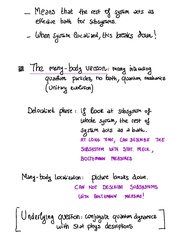 — Means that the rest of system acts as
effective bath for subsystem.
— When system localized, this breaks down!
The many-body version: many interacting
quantum particles, no bath, quantum mechanics
(Unitary evolution)
Delocalized phase: if look at subsystem of
whole system, the rest of
system acts as a bath.
AT LONG TIME, CAN DESCRIBE
THE SUBSYSTEM
WITH STAT. MECH,
BOLTZMANN MEASURES
Many-body localization: picture breaks down.
CAN NOT DESCRIBE SUBSYSTEMS
WITH BOLTZMANN MEASURE!
[Underlying question: conjugate quantum dynamics
with stat phys descriptions]